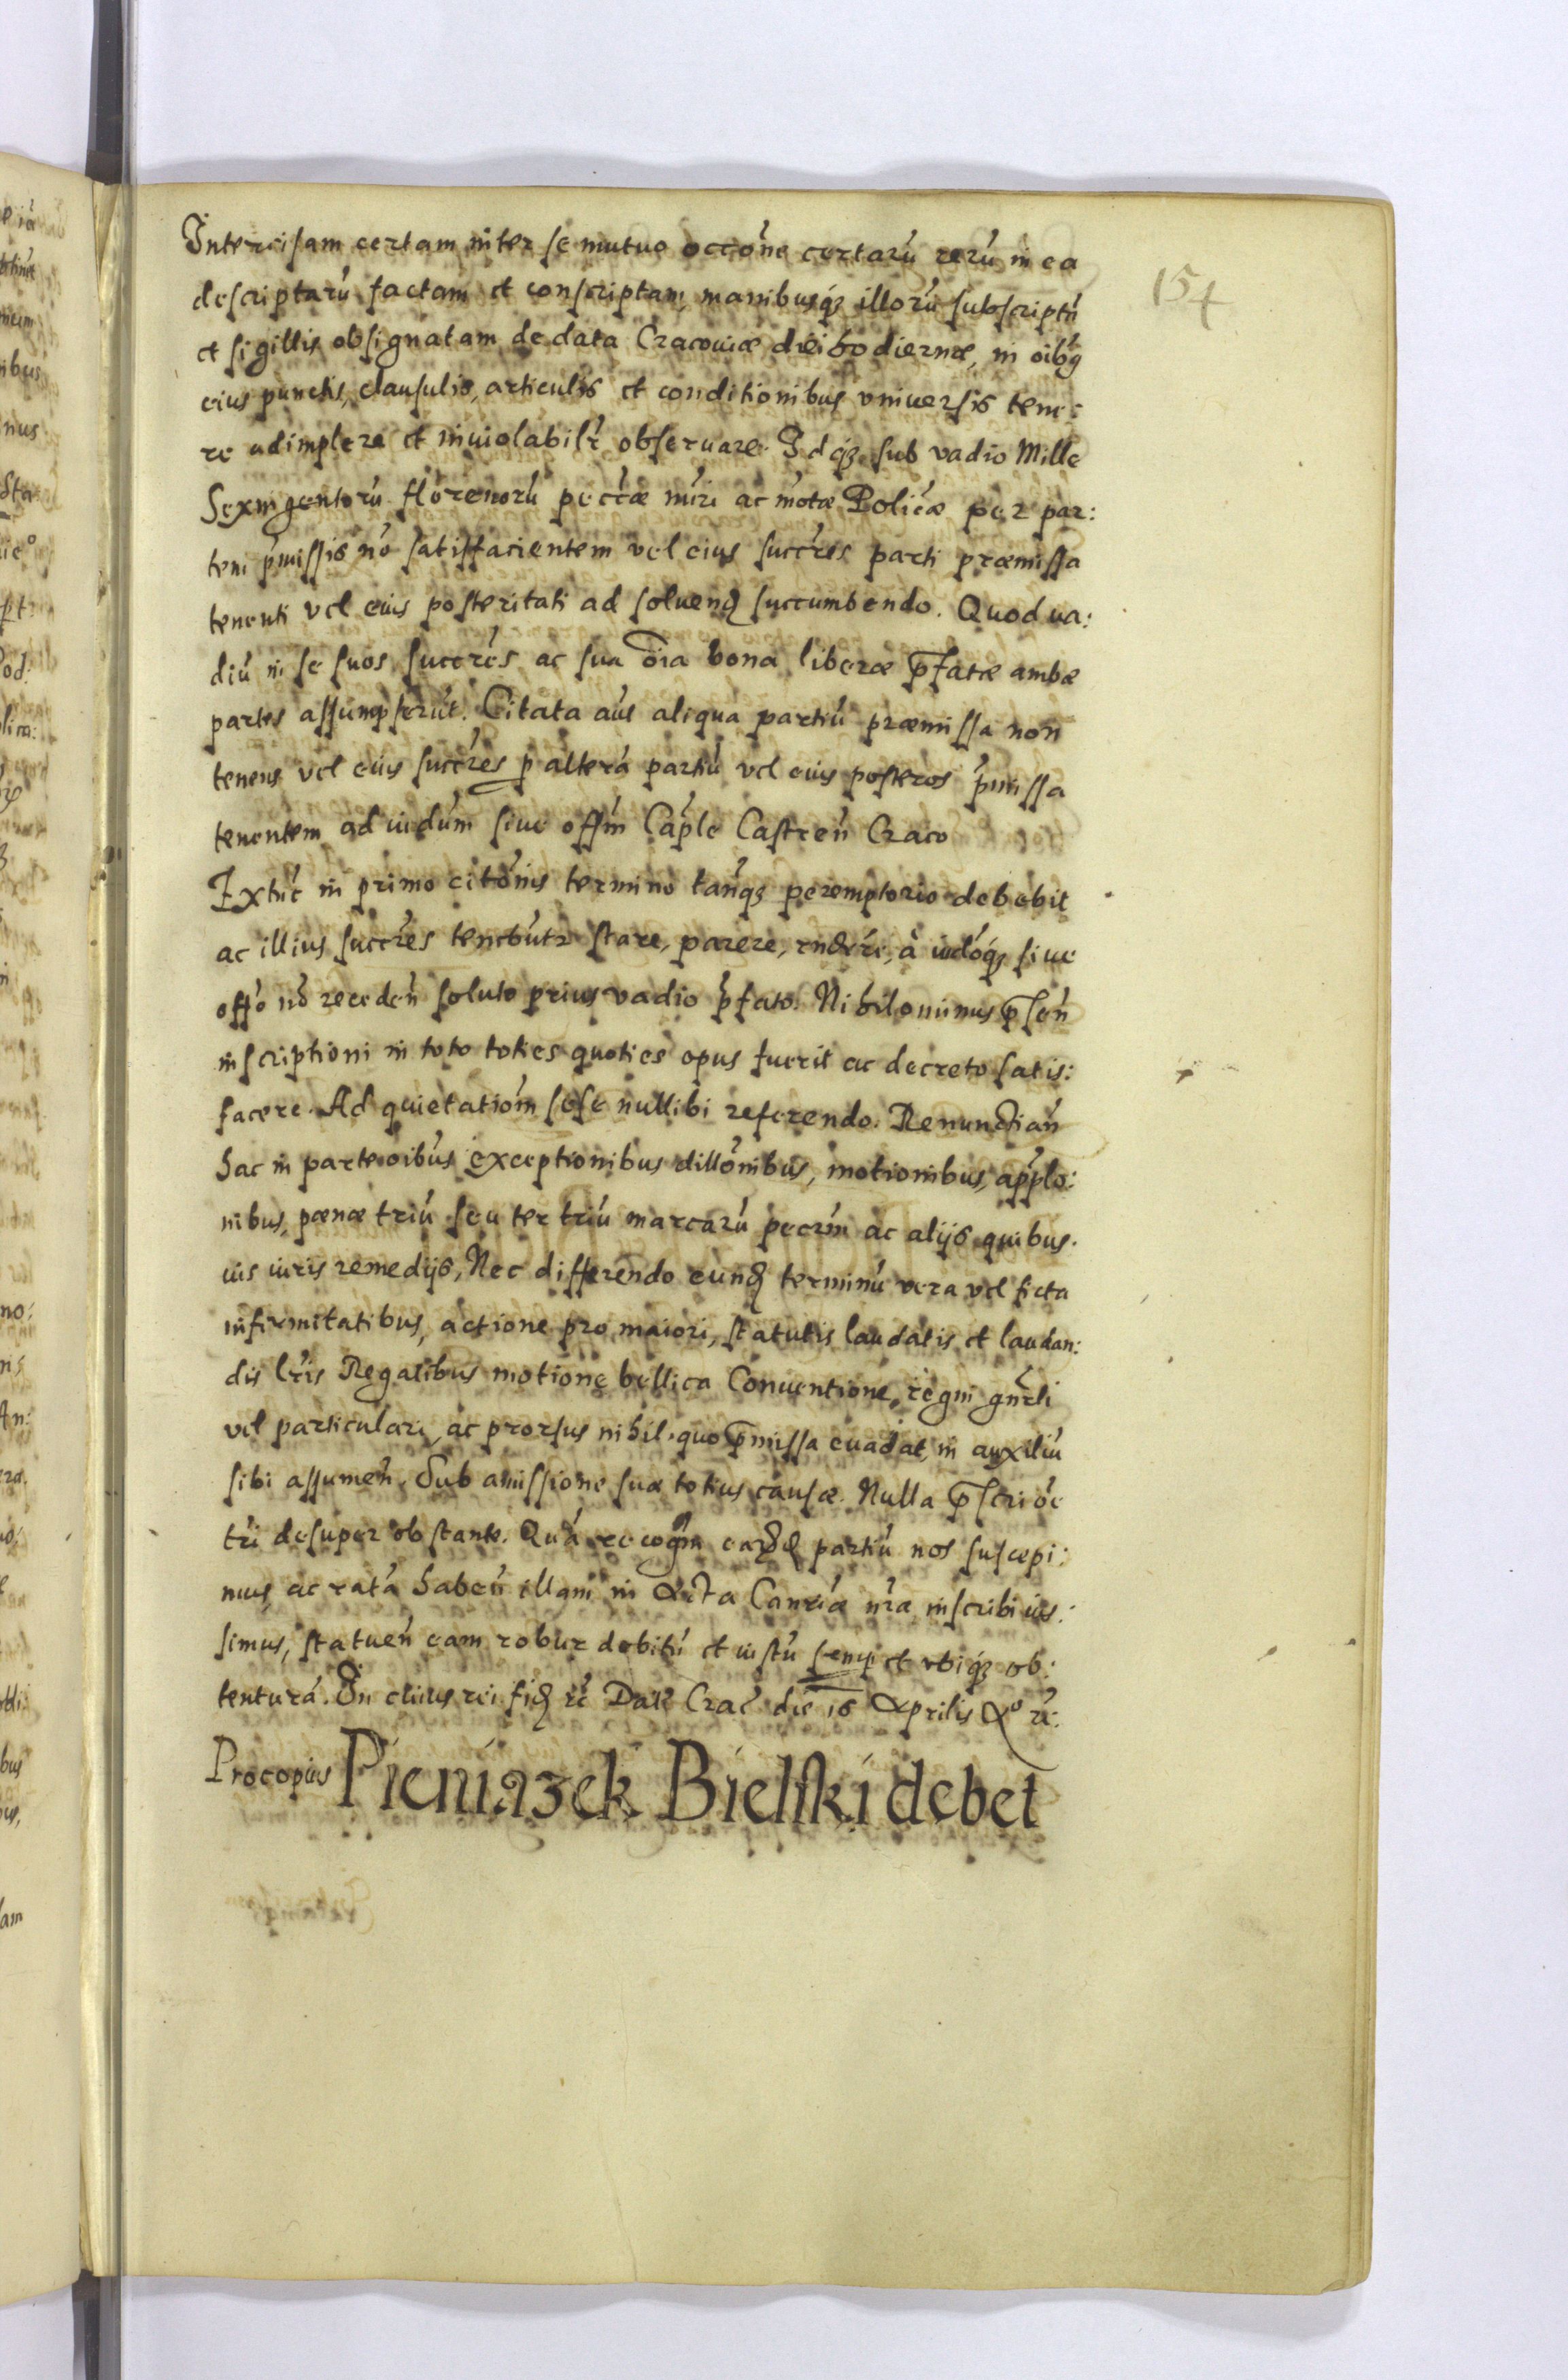 154
Intercisam certam inter se mutuo occōne certarū rerū in ea
descriptarū factam et conscriptam manibusq́ꝫ illorū subscriptā
et sigillis obsignatam de data Cracouiæ diei hodiernæ, in oibꝯ
eius punctis, clausulis, articulis et conditionibus vniuersis tene:
re adimplere et inuiolabilr̄ obseruare. Idq́ꝫ sub vadio Mille
Sexingentorū florenorū peccæ nūri ac mōtæ Policæ per par:
tem p̄missis nō satisfacientem vel eius succr̄es parti præmissa
tenenti vel eius posteritati ad soluenꝫ succumbendo. Quod va:
diū in se suos succr̄es ac sua oīa bona libere p̄fatæ ambæ
partes assumpserūt. Citata aūs aliqua partiū præmissa non
tenens vel eius succr̄es p̱ alterā partiū vel eius posteros p̄missa
tenentem ad iudūm siue offīm Cap̄le Castren̄ Craco
Extūc in primo citōnis termino tanq́ꝫ peremptorio debebit
ac illius succr̄es tenebūtr stare, parere, rn̄dere, à iudōq́ꝫ siue
offō nō receden̄ soluto prius vadio p̄fato. Nihilominus p̄sen̄
inscriptioni in toto toties quoties opus fuerit ac decreto satis:
facere. Ad quietatiōm sese nullibi referendo. Renunctian̄
hac in parte oibūs exceptionibus dillōnibus, motionibus, app̄lo:
nibus, pænæ triū seu ter triū marcarū pecrm̄ ac alijs quibus.
uis iuris remedijs, Nec differendo eunꝫ terminū vera vel ficta
infirmitatibus, actione pro maiori, statutis laudatis et laudan:
dis lr̄is Regalibus motione bellica Conuentione regni gnrl̄i
vel particulari, ac prorsus nihil quo p̄missa euadat, in auxiliū
sibi assumen̄. Sub amissione suæ totius causæ. Nulla p̄scriōe
tr̄i desuper obstante. Quā recogm̄ earꝫꝫ partiū nos suscepi:
mus, ac ratā haben̄ illam in Acta Canr̄iæ nr̄æ inscribi ius:
simus, statuen̄ eam robur debitū et iustū semp̱ et vbiq́ꝫ ob:
tenturā. In cuius rei fiꝫ rc̄ Datt Crac̄ die 16 Aprilis A° rc̄.
Procopius Pieniązek Bielski debet